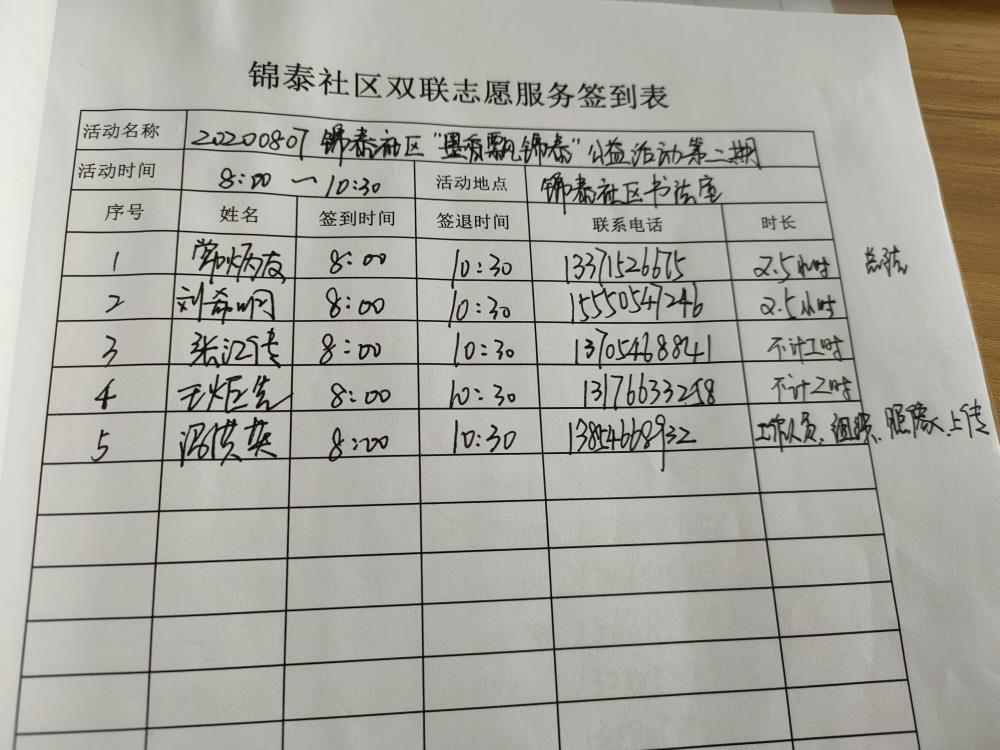 锦泰社区双联志愿服务签到表
活动名称 20200807 锦泰社区"墨香飘锦泰"公益活动第二期
活动时间 8:00 — 10:30 活动地点 锦泰社区书法室
序号 姓名 签到时间 签退时间 联系电话 时长
1 8:00 10:30 13371526675 2.5小时
2 刘希明 8:00 10:30 15550547246 2.5小时
3 张江传 8:00 10:30 13705468841 不计工时
4 王炬先 8:00 10:30 13176633258 不计工时
5 8:00 10:30 13854668932 工作人员、组织、照像、上传